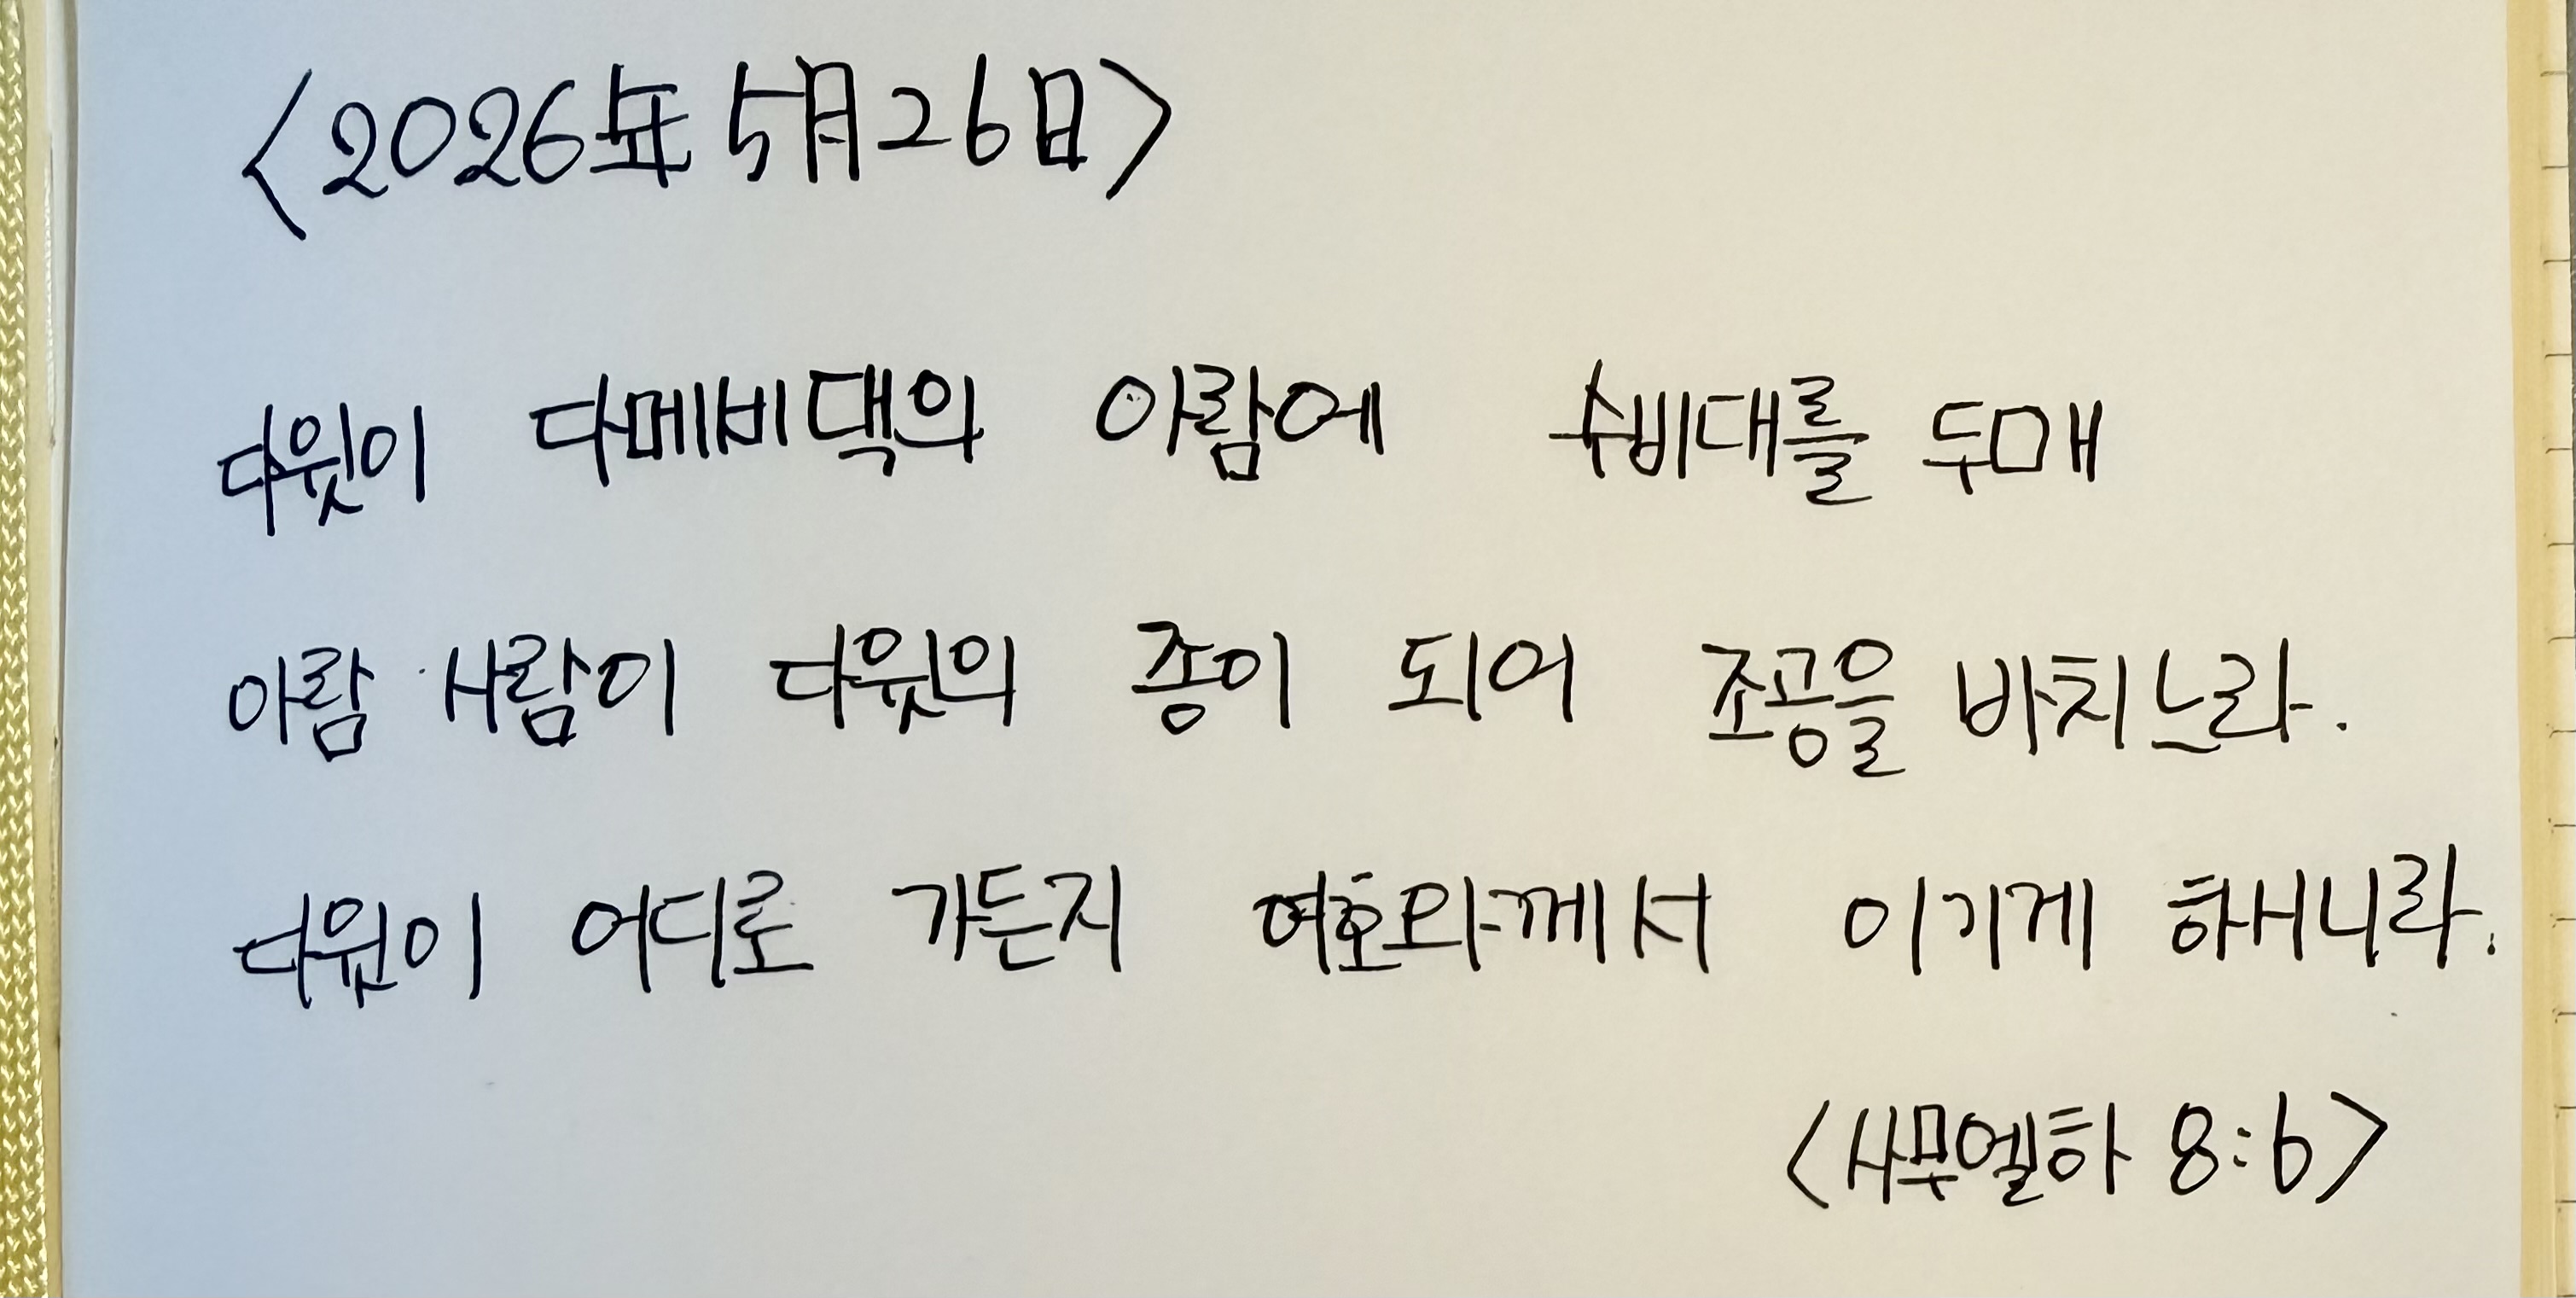 <2026年 5月 26日>
다윗이 다메비댁의 아람에 수비대를 두매
아람 사람이 다윗의 종이 되어 조공을 바치느라.
다윗이 어디로 가든지 여호와께서 이기게 하시니라.
<사무엘하 8:6>